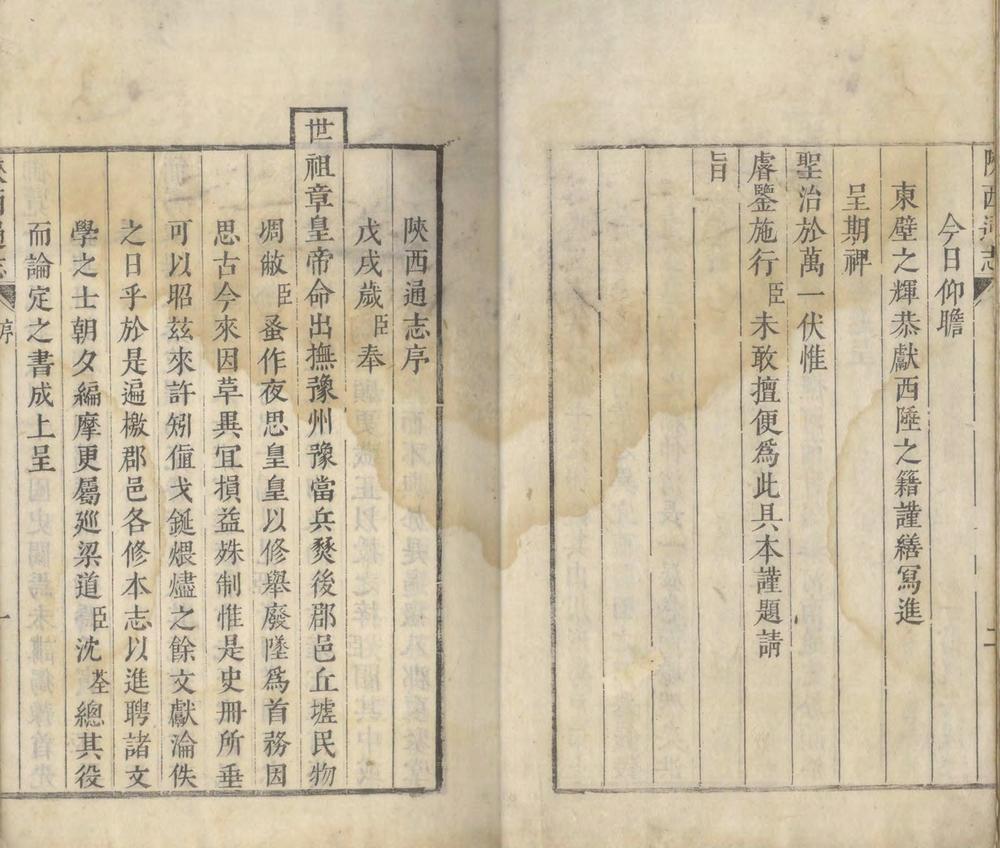 陝西通志
二
今日仰瞻
東壁之輝恭獻西陲之籍謹繕寫進
呈期裨
聖治於萬一伏惟
睿鑒施行臣未敢擅便爲此具本謹題請
旨
陝西通志序
戊戌歲臣奉
世祖章皇帝命出撫豫州豫當兵燹後郡邑丘墟民物
凋敝臣蚤作夜思皇皇以修舉廢墜爲首務因
思古今來因革異宜損益殊制惟是史册所垂
可以昭玆來許矧値戈鋋煨燼之餘文獻淪佚
之日乎於是遍檄郡邑各修本志以進聘諸文
學之士朝夕編摩更屬廵梁道臣沈荃總其役
而論定之書成上呈
陝西通志
序
一